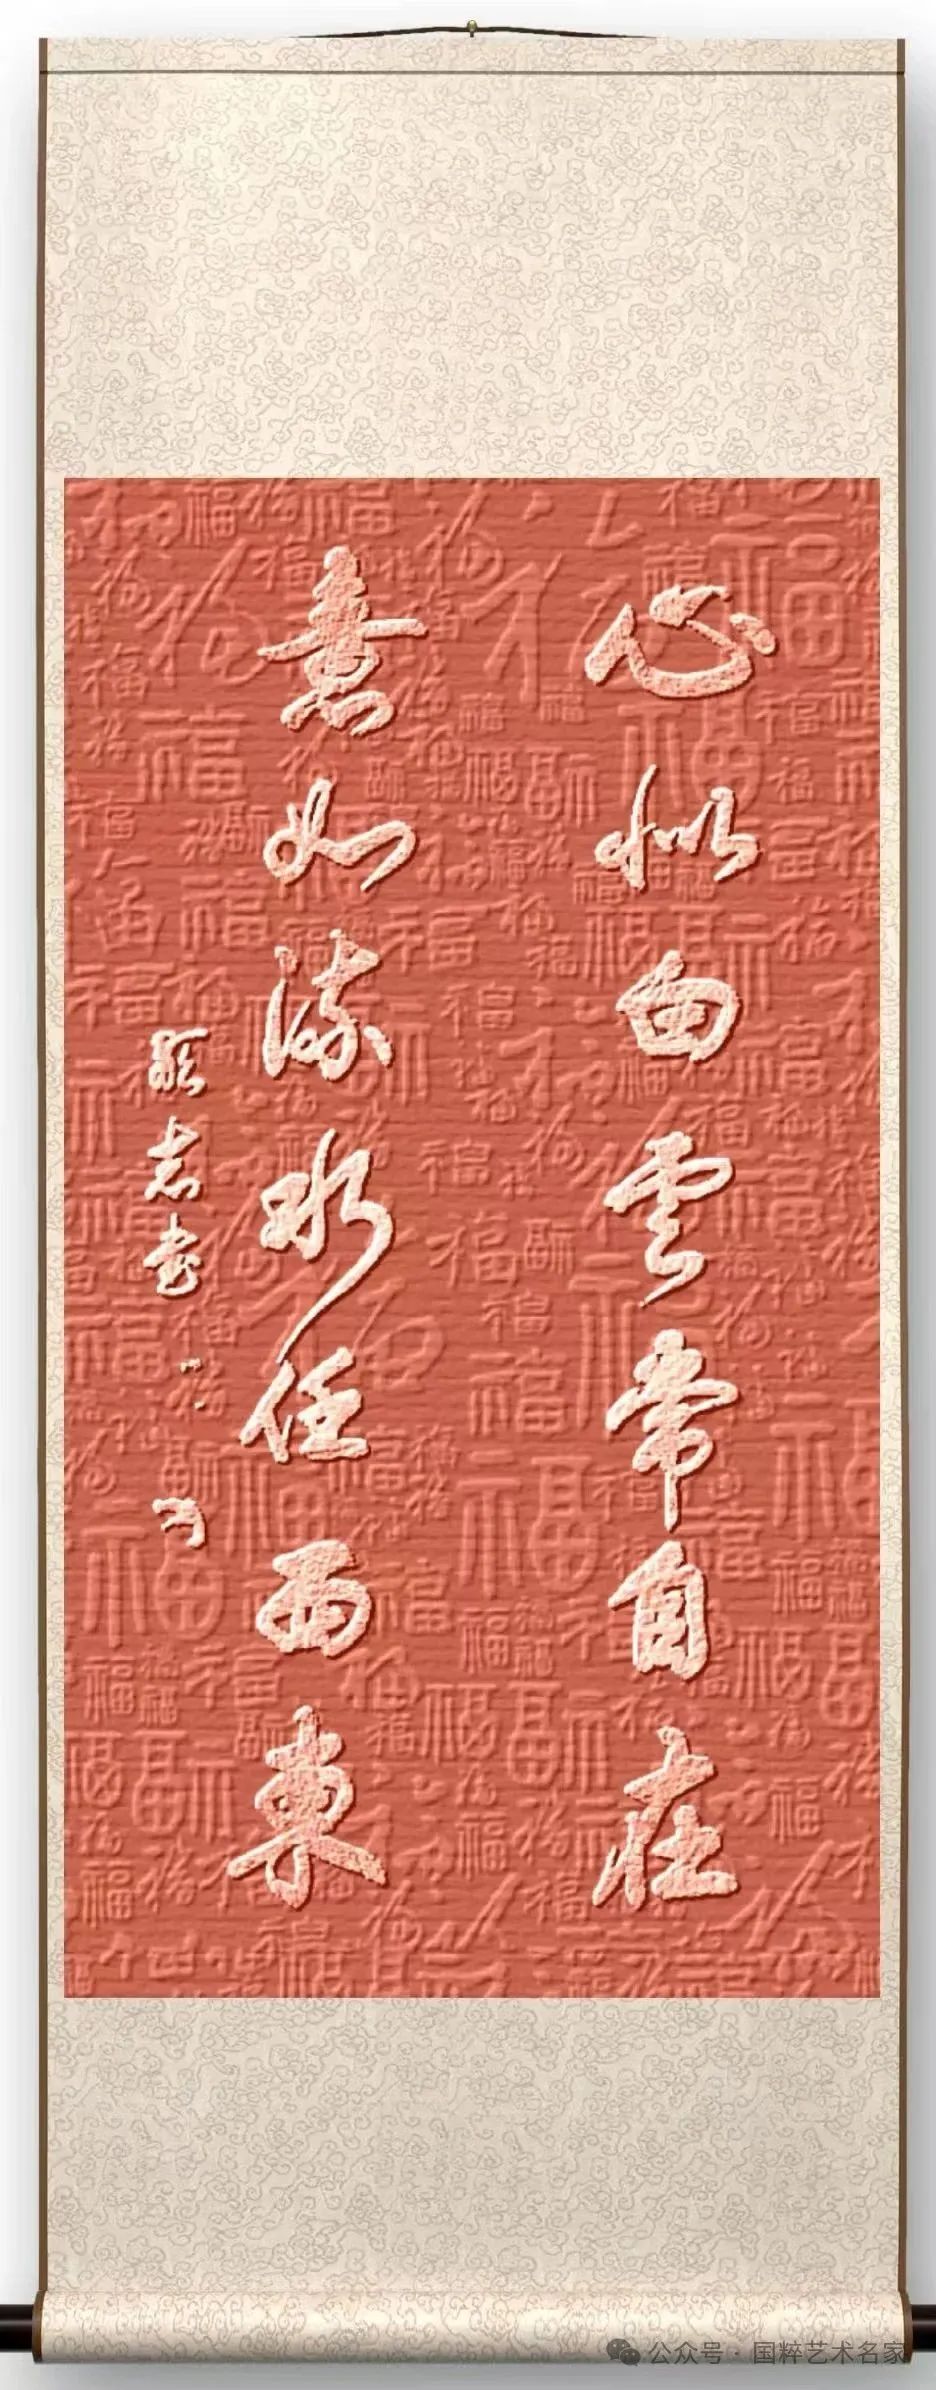 心似白雲常自在
意如流水任西東
志書
公众号·国粹艺术名家